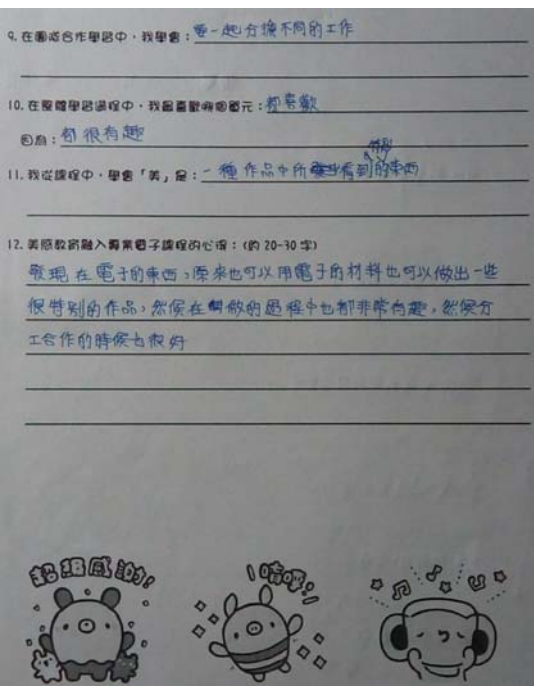 9. 在團隊合作學習中，我學會：要一起分擔不同的工作
10. 在整體學習過程中，我最喜歡哪個單元：都喜歡
因為：都很有趣
11. 我從課程中，學會「美」是：一種作品中所看到的特別的東西
12. 美感教育融入專業電子課程的心得：(約 20-30 字)
發現在電子的東西，原來也可以用電子的材料也可以做出一些
很特別的作品，然候在做的過程中也都非常有趣，然候分
工合作的時候也很好
超級感謝!
唷呼!